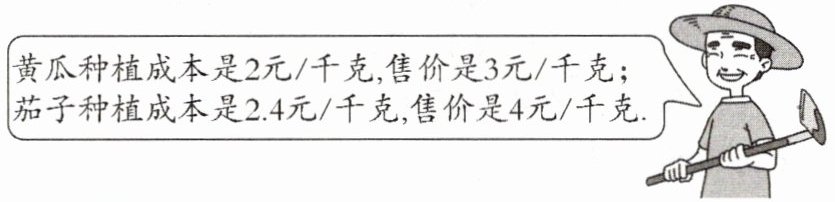 黄瓜种植成本是2元/千克,售价是3元/千克;
茄子种植成本是2.4元/千克,售价是4元/千克.